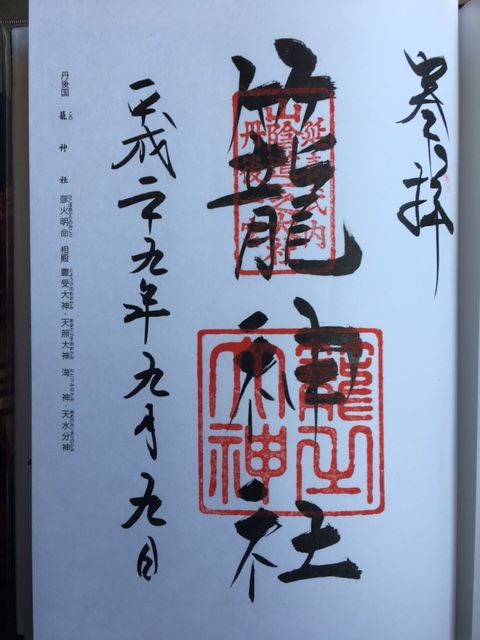 奉拝
籠神社
延喜式内
山陰道之大社
丹後一宮
籠之
大神
平成二十九年九月九日
丹後国 籠神社 彦火明命 相殿 豊受大神・天照大神 海神・天水分神